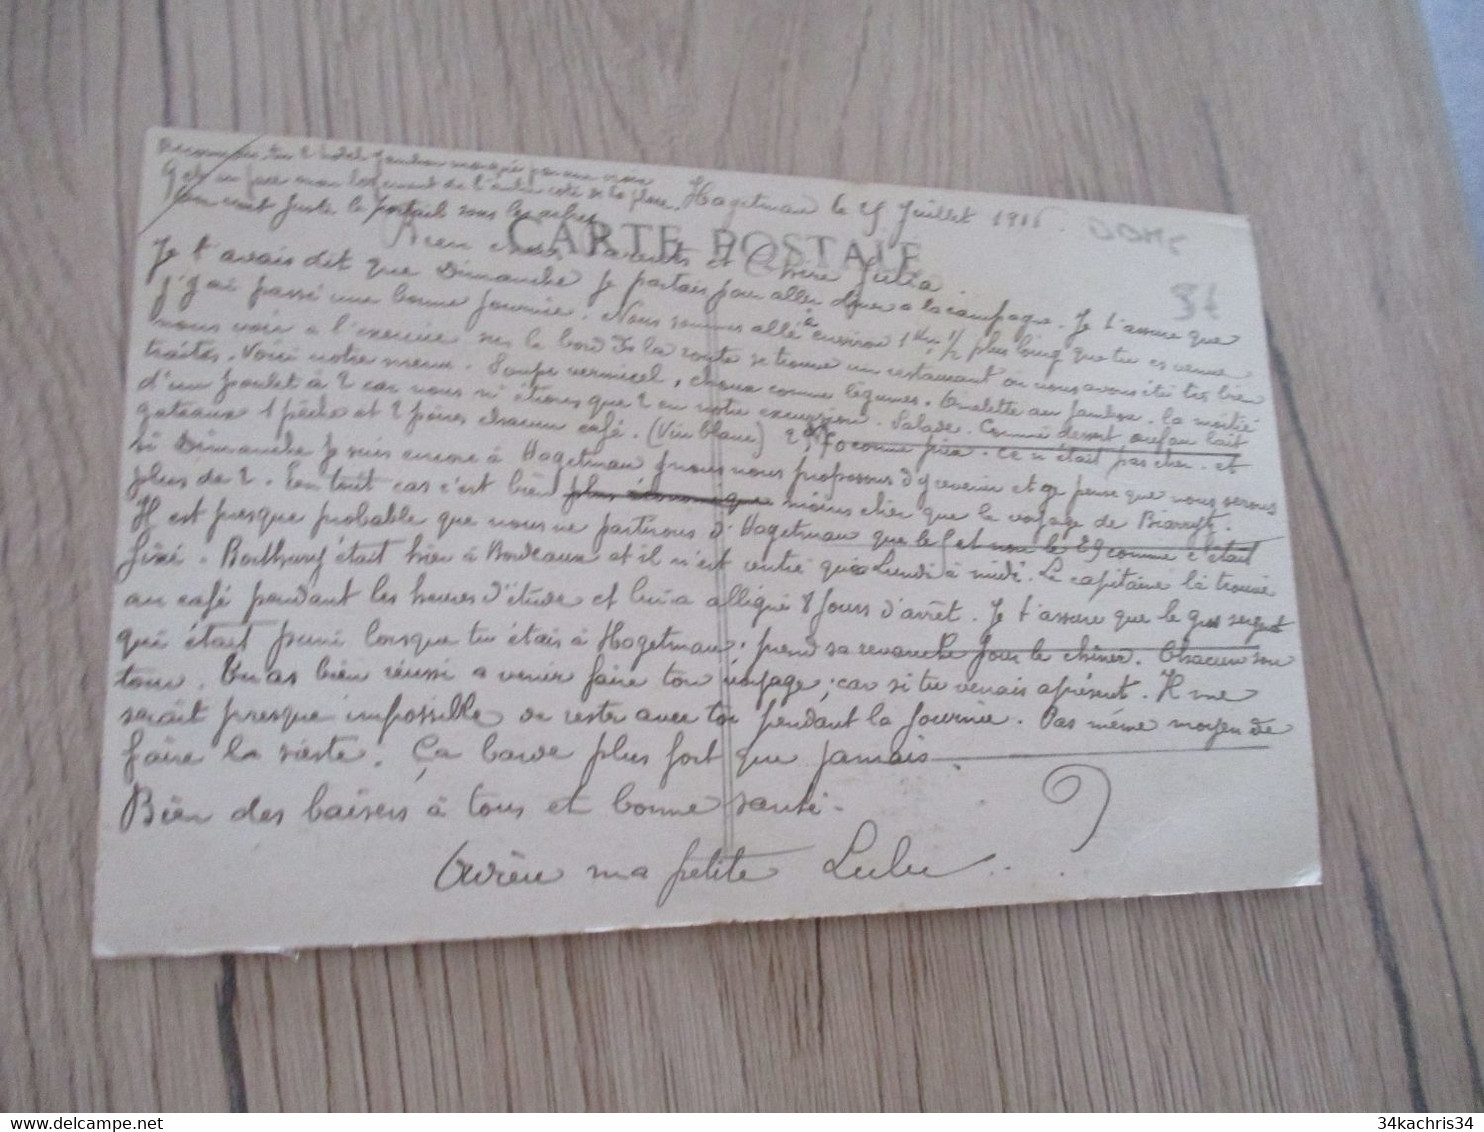 Reconnais tu l'hotel marqué par une croix
C'est en face mon logement de l'autre coté de la place.
juste le portail sous les arbres
Hagetmau le 25 Juillet 1916
CARTE POSTALE
Bien chers Parents et Chère Julia.
Je t'avais dit que Dimanche je partais pour aller diner a la campagne. Je t'assure que
j'y ai passé une bonne journée. Nous sommes allé à environ 1 Km 1/2 plus loin que tu es venue
nous voir a l'exercice sur le bord de la route se trouve un restaurant où nous avons été très bien
traités. Voici notre menu. Soupe vermicel, choux comme légumes. Omelette au jambon. la moitié
d'un poulet à 2 car nous n'étions que 2 en notre excursion. Salade. Comme dessert au lait
gateaux 1 pêche et 2 poires chacun café. (Vin blanc) comme prix. ce n'était pas cher. et
si Dimanche je suis encore à Hagetmau nous nous proposons d'y revenir et je pense que nous serons
plus de 2. En tout cas c'est bien moins cher que le voyage de Biarritz.
Il est presque probable que nous ne partirons d'Hagetmau que le et non le 29 comme c'était
fixé. était hier à Bordeaux et il n'est rentré que Lundi à midi. Le capitaine l'a trouvé
au café pendant les heures d'étude et lui a alligné 8 jours d'arrêt. Je t'assure que le gros sergent
qui était puni lorsque tu étais à Hagetmau, prend sa revanche pour le chiner. Chacun son
tour. Tu as bien réussi a venir faire ton voyage; car si tu venais aprésent. Il me
serait presque impossible de rester avec toi pendant la journée. Pas même moyen de
faire la sieste. Ça barde plus fort que jamais.
Bien des baisers à tous et bonne santé.
Adieu ma petite Lulu..
34kachris34